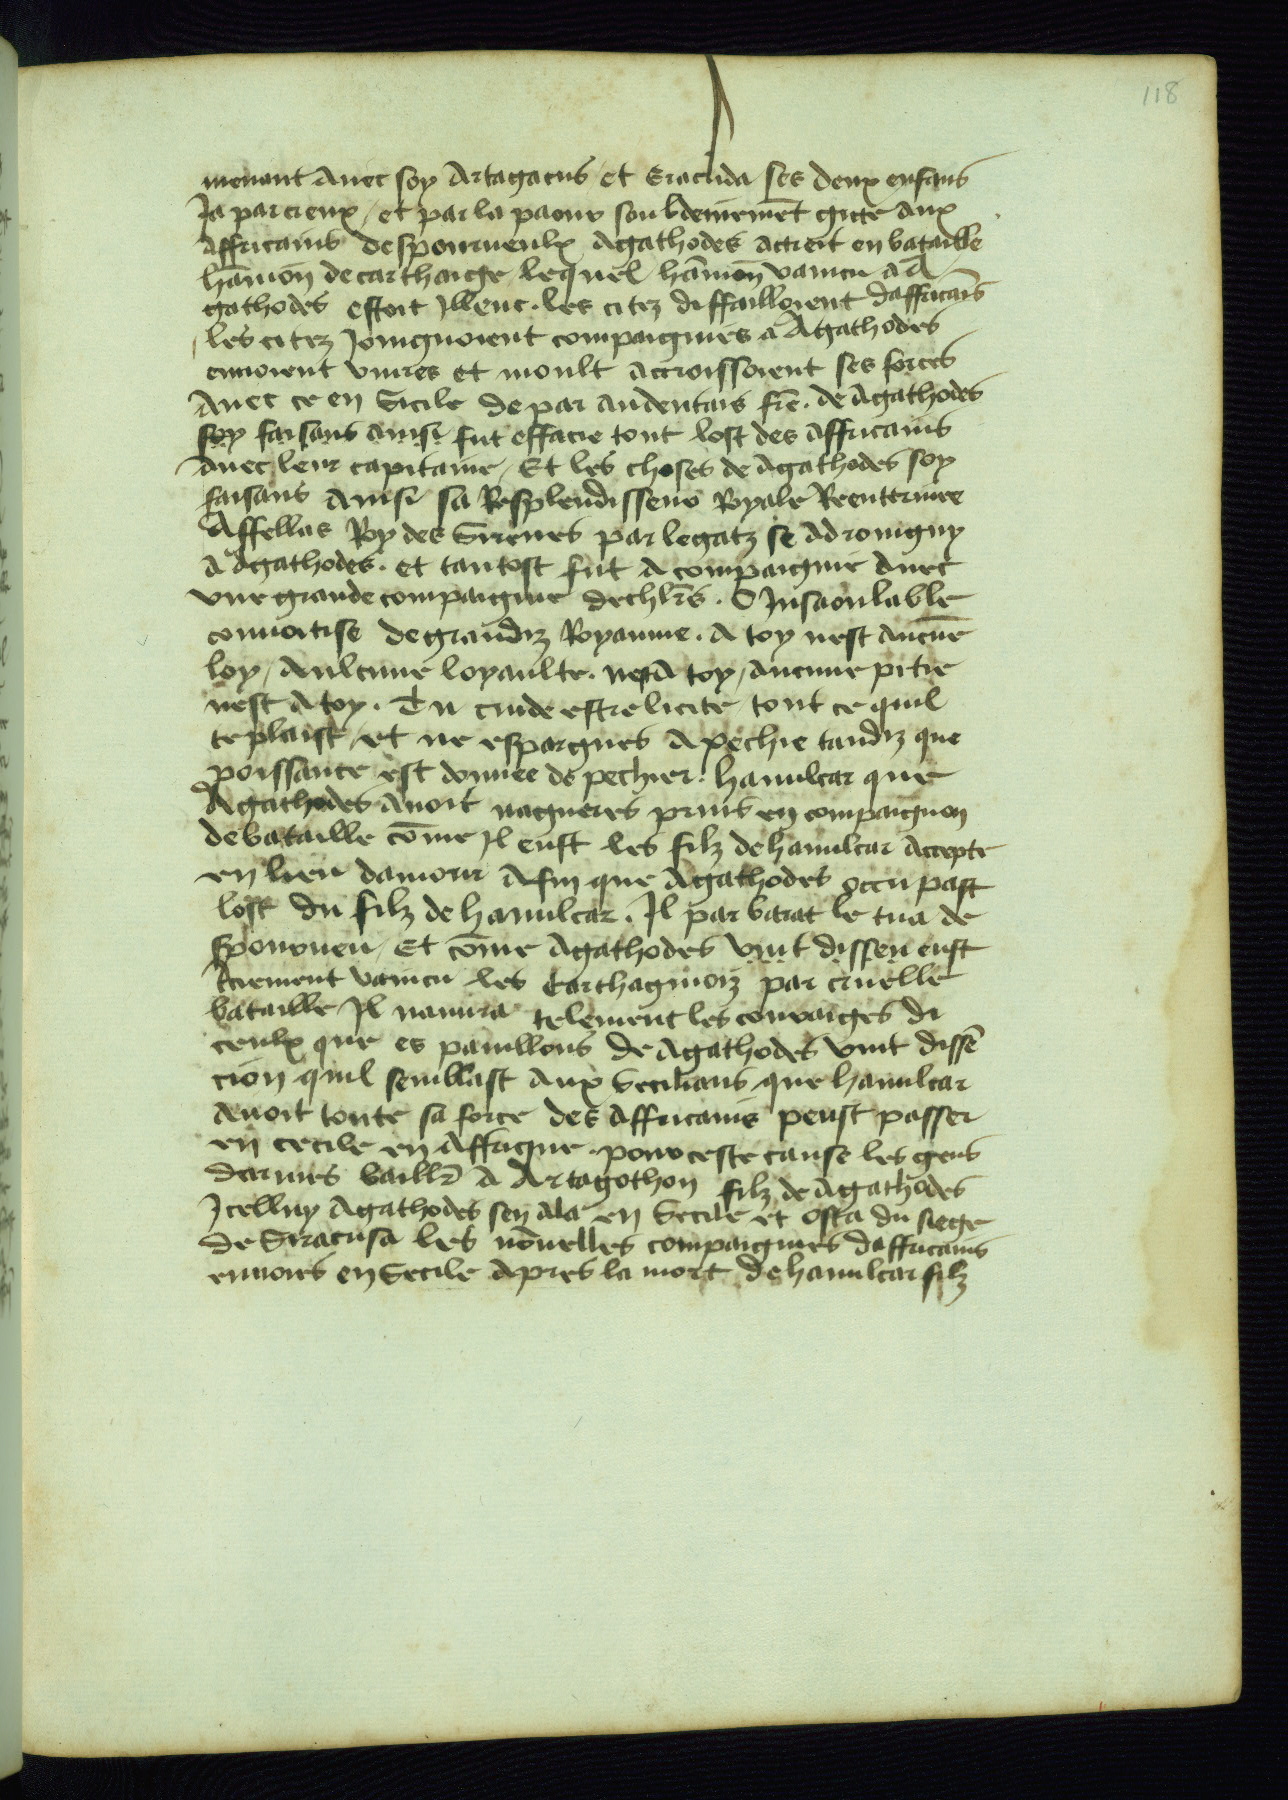 118
menant avec soy Artagacus et Eracuda ses deux enfans
Ja parcreux / et par la paour soubdeinemēt gitte aux
affricains despourveulx Agathodes actreit en bataille
hāmon de carthaige / lequel hāmon vaincu a A
gathodes estoit Illenc. les citez diffailloient daffricaīs
les citez Joingnoient compaignies a Agathodes
envoient vivres et moult accroissoient ses forces
Avec ce en Sicile de par andentais fr̄e. de Agathodes
soy faisans ainsi fut effacie tout lost des affricains
avec leur capitaine / Et les choses de Agathodes soy
faisans ainsi sa Resplendisseur Royale
Affellas Roy des Sirenes par legatz se adroingny
a Agathodes. et tantost fut acompaignie avec
une grande compaignie dechlr̄s. O Insaoulable
convoitise de grandz Royaume. A toy nest aucūe
loy / Aulcune loyaulte. nest A toy / aucune pitie
nest A toy. Tu cuide estre licite tout ce quil
te plaist / et ne espargnes A pechie tandiz que
poissance est donnee de pechier. hamilcar que
Agathodes avoit nagueres prins en compaignon
de bataille cōme Il eust les filz de hamilcar accepte
en lieu damour Afin que Agathodes occupast
lost du filz de hamilcar. Il par barat le tua de
spourveu / Et cōme Agathodes vint disseu eust
vaincu les Carthaginoiz par cruelle
bataille Il navira telement les couraiges di
ceulx que es pavillons de Agathodes vint dissē
cion quil semblast aux Secilians que hamilcar
avoit toute sa force des affricains peust passer
en cecile en Affrique. pour ceste cause les gens
darmes baillr̄ A Artagothon filz de Agathodes
Icelluy Agathodes sen ala en Secile et osta du siege
de Siracusa les nōuelles compaignies daffricains
envoies en Secile Apres la mort de hamilcar filz